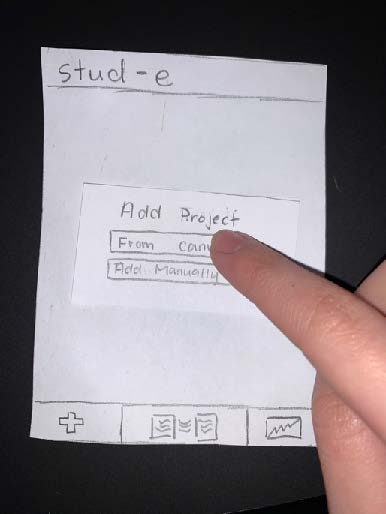 stud-e
Add Project
From
Add Manually